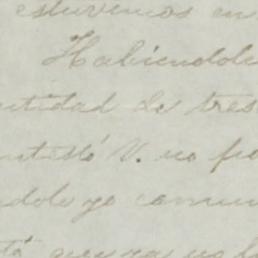 estuvimos en
Habiendole
ntidad de tres
ntestó V. no pu
ndole yo comun